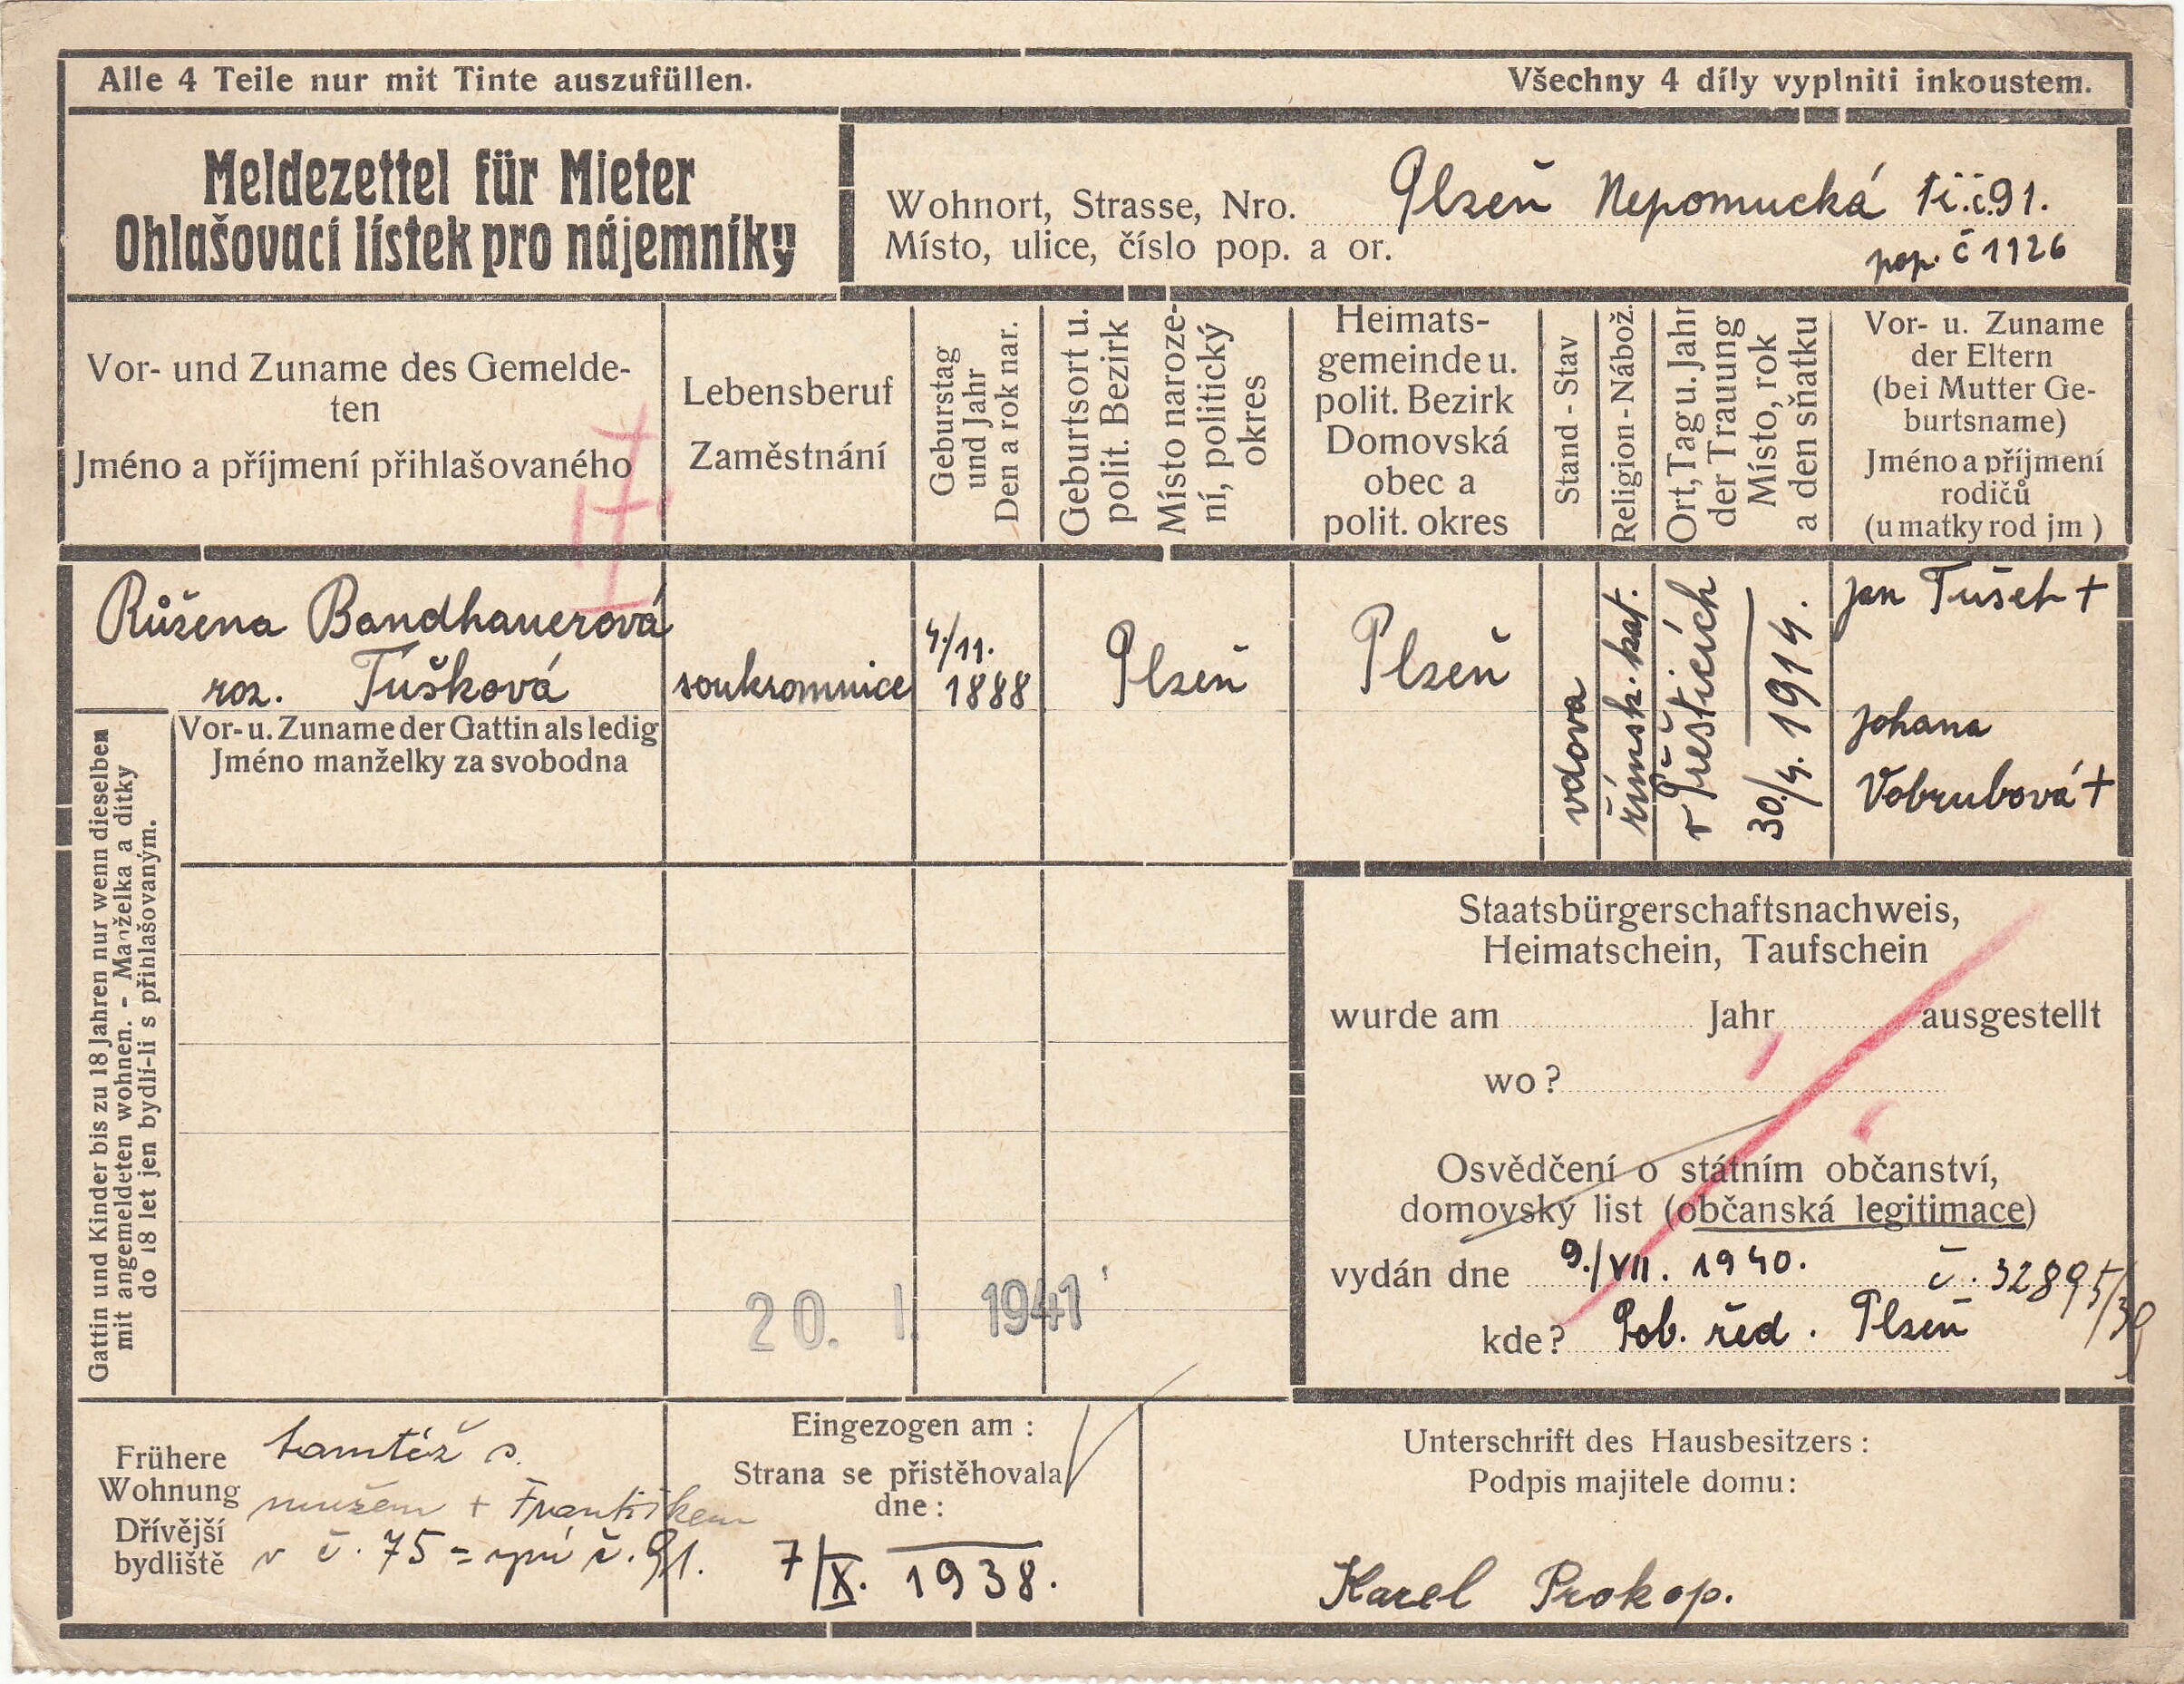 Alle 4 Teile nur mit Tinte auszufüllen.
Všechny 4 díly vyplniti inkoustem.
Meldezettel für Mieter
Ohlašovací lístek pro nájemníky
Wohnort, Strasse, Nro.
Místo, ulice, číslo pop. a or.
Plzeň Nepomucká tř.č.91.
pop. č 1126
Vor- und Zuname des Gemelde-
ten
Jméno a příjmení přihlašovaného
Lebensberuf
Zaměstnání
Geburstag
und Jahr
Den a rok nar.
Geburtsort u.
polit. Bezirk
Místo naroze-
ní, politický
okres
Heimats-
gemeinde u.
polit. Bezirk
Domovská
obec a
polit. okres
Stand - Stav
Religion - Nábož.
Ort, Tag u. Jahr
der Trauung
Místo, rok
a den sňatku
Vor- u. Zuname
der Eltern
(bei Mutter Ge-
burtsname)
Jméno a příjmení
rodičů
(u matky rod jm )
Růžena Bandhauerová
roz. Tušková
soukromnice
4./11.
1888
Plzeň
Plzeň
vdova
římsk. kat.
v Přešticích
30./4. 1914.
Jan Tušek +
Johana
Vobrubová +
Vor- u. Zuname der Gattin als ledig
Jméno manželky za svobodna
Gattin und Kinder bis zu 18 Jahren nur wenn dieselben
mit angemeldeten wohnen. - Manželka a dítky
do 18 let jen bydlí-li s přihlašovaným.
Staatsbürgerschaftsnachweis,
Heimatschein, Taufschein
wurde am Jahr ausgestellt
wo?
Osvědčení o státním občanství,
domovský list (občanská legitimace)
vydán dne 9./VII. 1940. č. 32895/39
kde? Pol. řed. Plzeň
20. I. 1941
Frühere
Wohnung
Dřívější
bydliště
tamtéž s.
mužem + Františkem
v č. 75 = nyní č. 91.
Eingezogen am :
Strana se přistěhovala
dne :
7/X. 1938.
Unterschrift des Hausbesitzers :
Podpis majitele domu:
Karel Prokop.